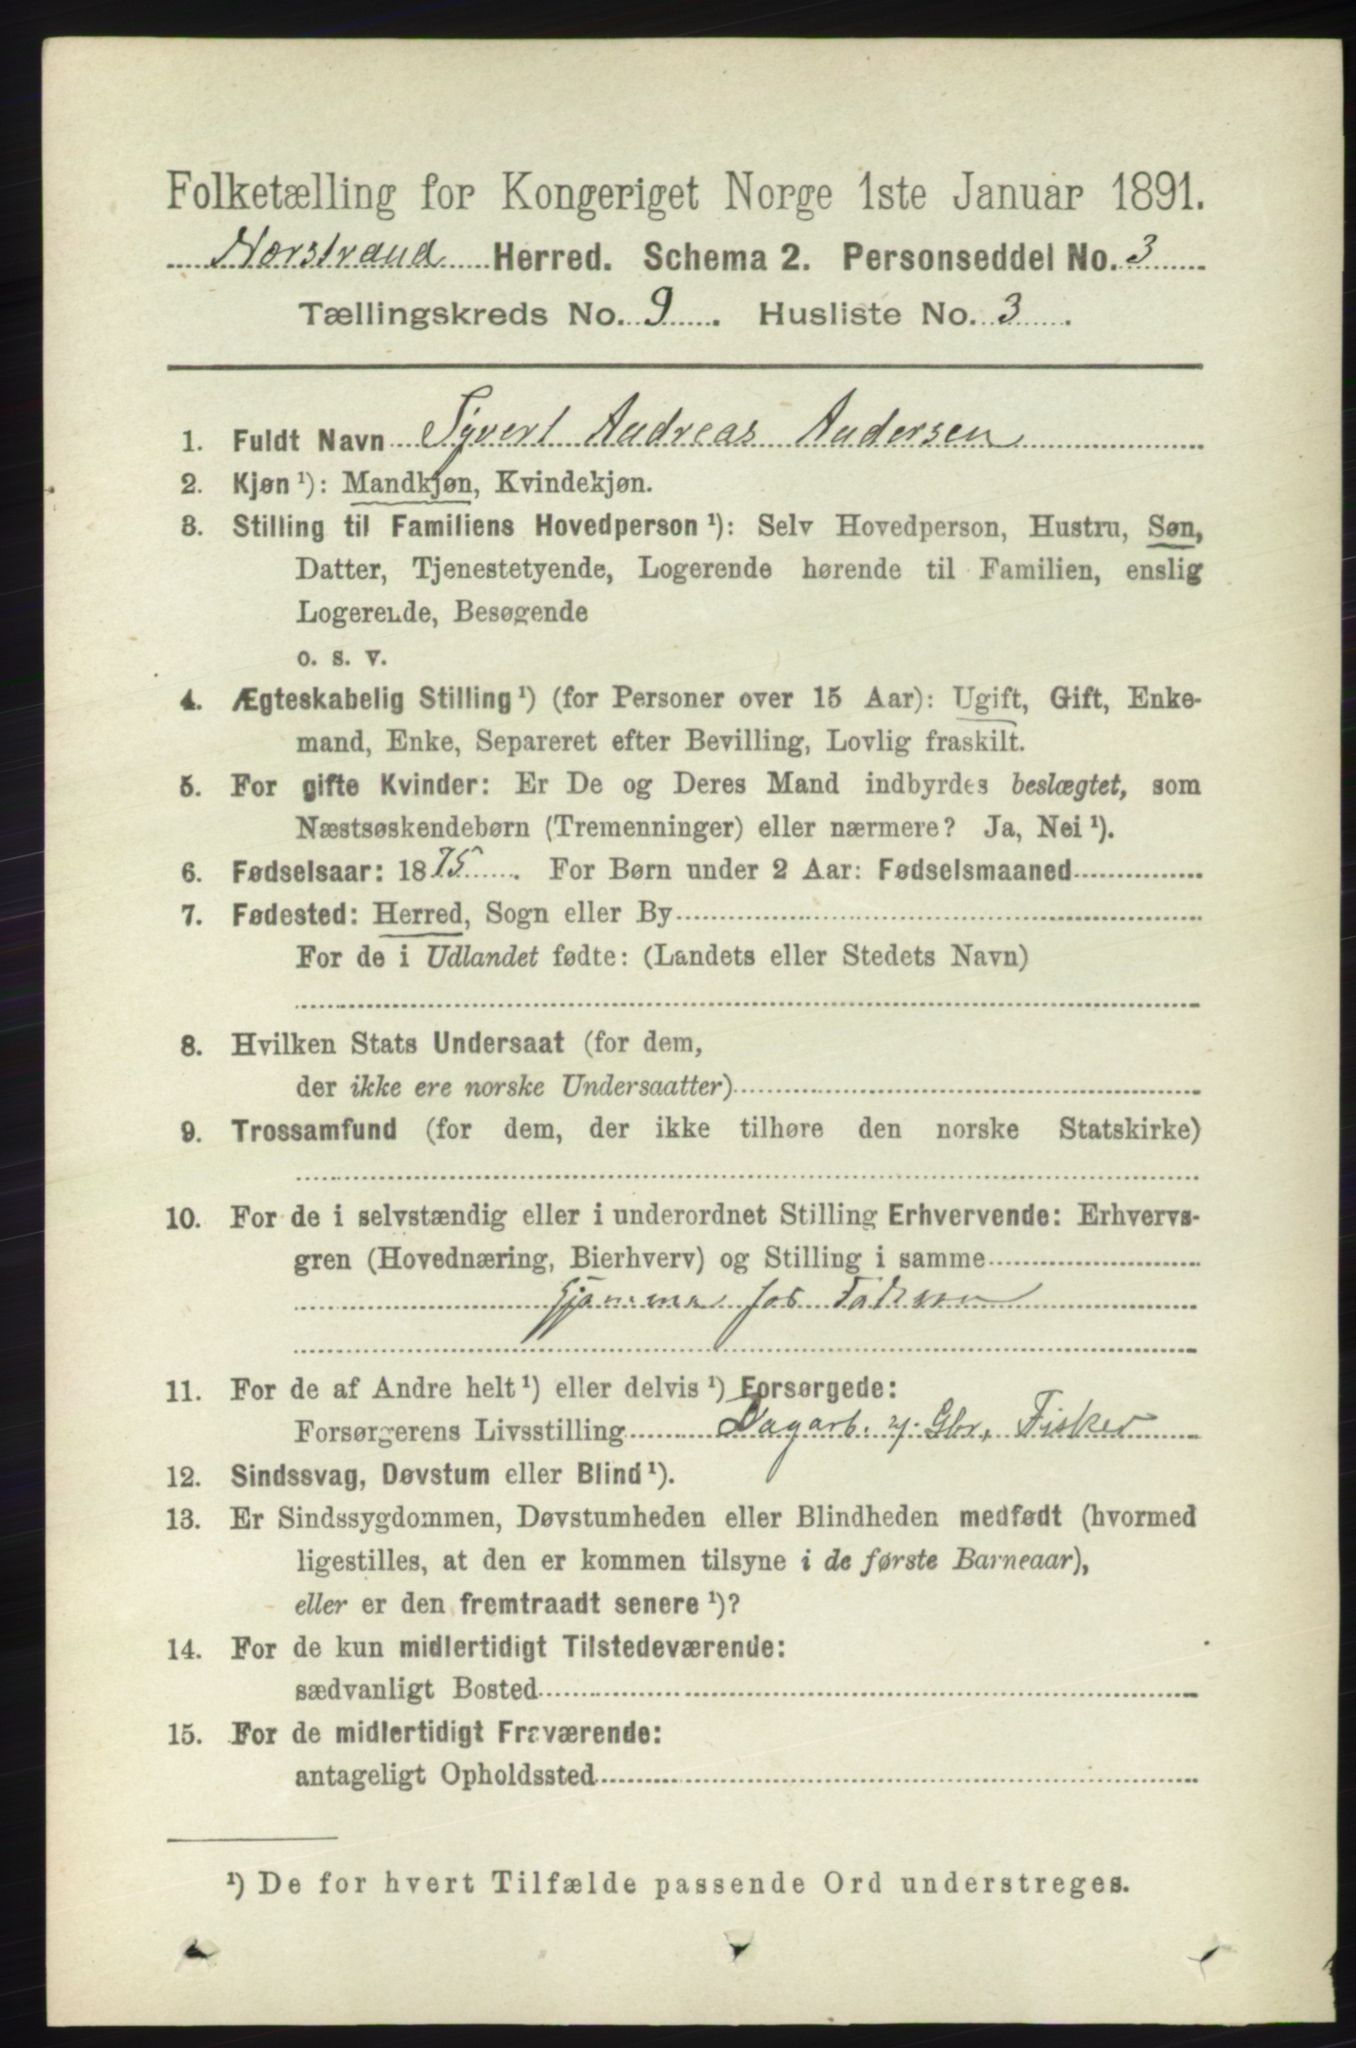 Folketælling for Kongeriget Norge 1ste Januar 1891.
Nærstrand Herred. Schema 2. Personseddel No. 3
Tællingskreds No. 9. Husliste No. 3.
1. Fuldt Navn Syvert Andreas Andersen
2. Kjøn ¹): Mandkjøn, Kvindekjøn.
3. Stilling til Familiens Hovedperson ¹): Selv Hovedperson, Hustru, Søn,
Datter, Tjenestetyende, Logerende hørende til Familien, enslig
Logerende, Besøgende
o. s. v.
4. Ægteskabelig Stilling ¹) (for Personer over 15 Aar): Ugift, Gift, Enke-
mand, Enke, Separeret efter Bevilling, Lovlig fraskilt.
5. For gifte Kvinder: Er De og Deres Mand indbyrdes beslægtet, som
Næstsøskendebørn (Tremenninger) eller nærmere? Ja, Nei ¹).
6. Fødselsaar: 1875. For Børn under 2 Aar: Fødselsmaaned
7. Fødested: Herred, Sogn eller By
For de i Udlandet fødte: (Landets eller Stedets Navn)
8. Hvilken Stats Undersaat (for dem,
der ikke ere norske Undersaatter)
9. Trossamfund (for dem, der ikke tilhøre den norske Statskirke)
10. For de i selvstændig eller i underordnet Stilling Erhvervende: Erhvervs-
gren (Hovednæring, Bierhverv) og Stilling i samme
Hjemme hos Faderen
11. For de af Andre helt ¹) eller delvis ¹) Forsørgede:
Forsørgerens Livsstilling Dagarb. Gbr. Fisker
12. Sindssvag, Døvstum eller Blind ¹).
13. Er Sindssygdommen, Døvstumheden eller Blindheden medfødt (hvormed
ligestilles, at den er kommen tilsyne i de første Barneaar),
eller er den fremtraadt senere ¹)?
14. For de kun midlertidigt Tilstedeværende:
sædvanligt Bosted
15. For de midlertidigt Fraværende:
antageligt Opholdssted
¹) De for hvert Tilfælde passende Ord understreges.